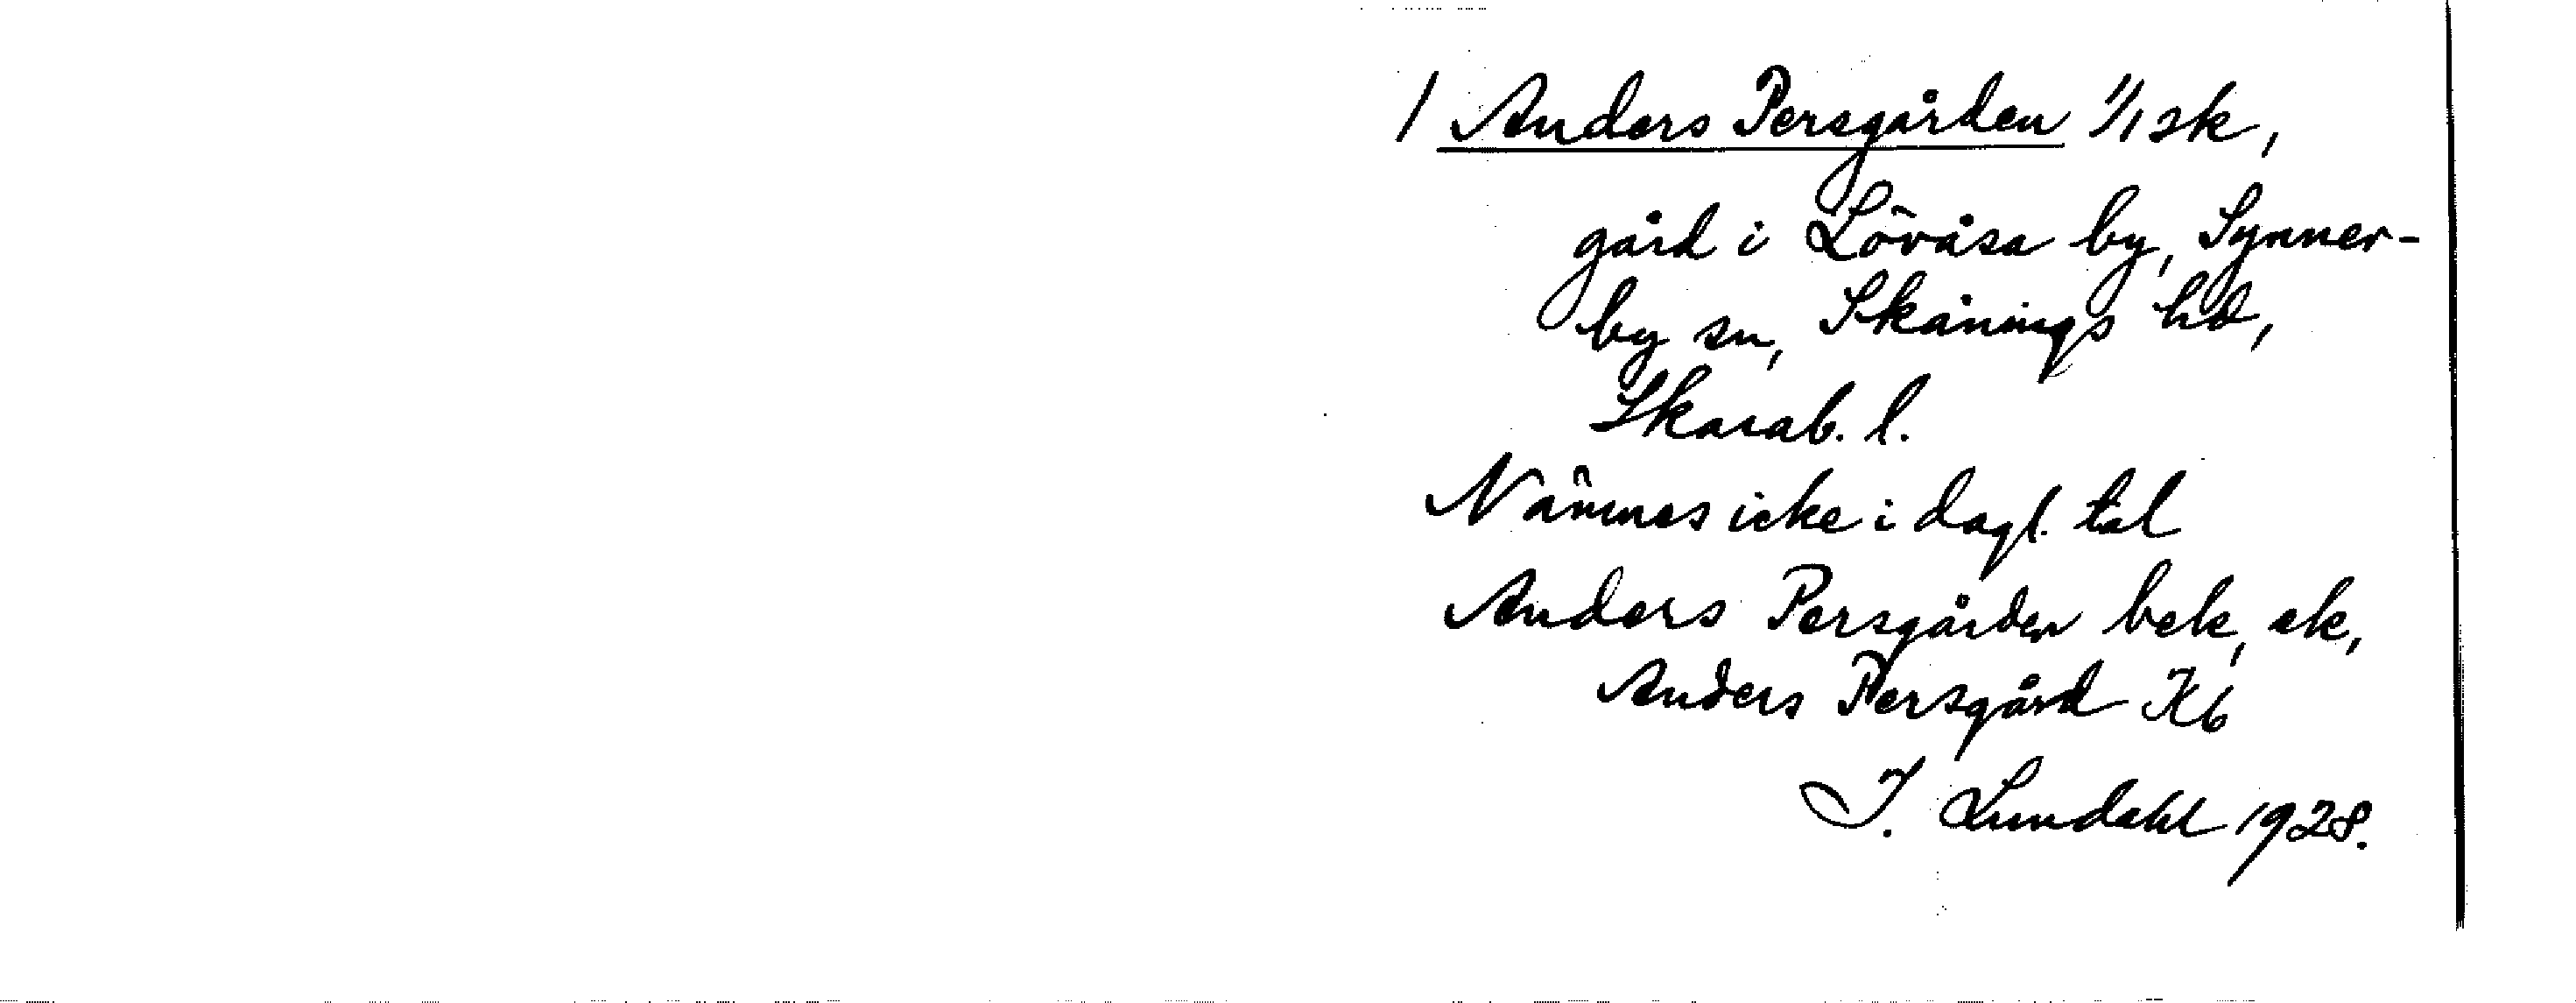 / Anders Persgården 1/1 sk,
gård i Lövåsa by, Synner-
by sn, Skånings hd,
Skarab. l.
Nämnes icke i dagl. tal
Anders Persgården bek, ek,
Anders Persgård Kb
I. Lundahl 1928.